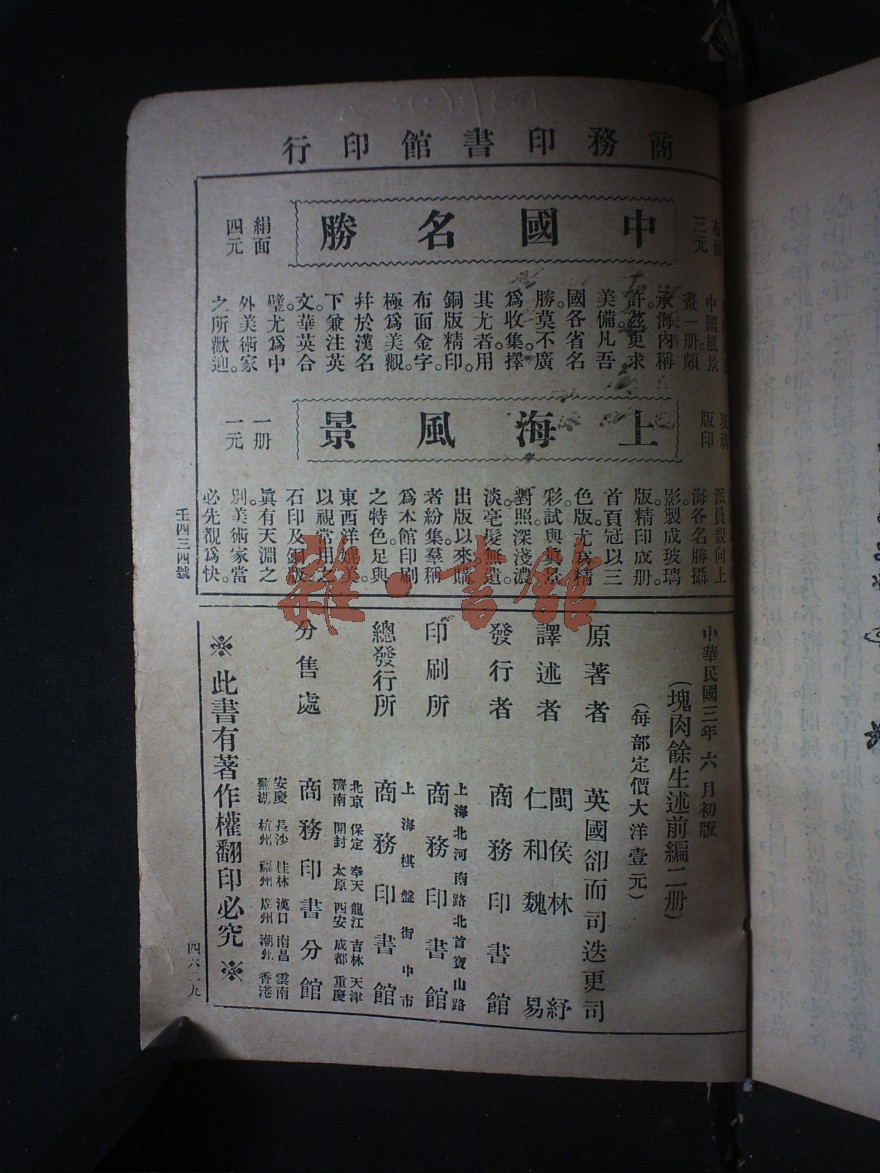 商務印書館印行
三元
中國名勝
絹面
四元
中國風景
畫一册頗
承海內稱
許茲更求
美備凡吾
國各省名
勝莫不廣
爲收集擇
其尤者用
銅版精印。
布面金字。
極爲美觀。
幷於漢名
下兼注英
文華英合
璧尤爲中
外美術家
之所歡迎。
玻璃
版印
上海風景
一册
一元
派員親向上
海各名勝攝
影製成玻璃
版精印成册。
首頁冠以三
色版尤爲精
彩試與眞景
對照深淺濃
淡毫髮無遺。
出版以來購
者紛集羣稱
爲本館印刷
之特色足與
東西洋媲美
以視常用之
石印及銅版
眞有天淵之
別美術家當
必先覩爲快。
壬四三四號
中華民國三年六月初版
(塊肉餘生述前編二册)
(每部定價大洋壹元)
原著者 英國卻而司迭更司
譯述者 閩侯林紓
仁和魏易
發行者 商務印書館
上海北河南路北首寶山路
印刷所 商務印書館
上海棋盤街中市
總發行所 商務印書館
北京 保定 奉天 龍江 吉林 天津
濟南 開封 太原 西安 成都 重慶
分售處 商務印書分館
安慶 長沙 桂林 漢口 南昌 雲南
蕪湖 杭州 福州 廣州 潮州 香港
※此書有著作權翻印必究※
雜·書館